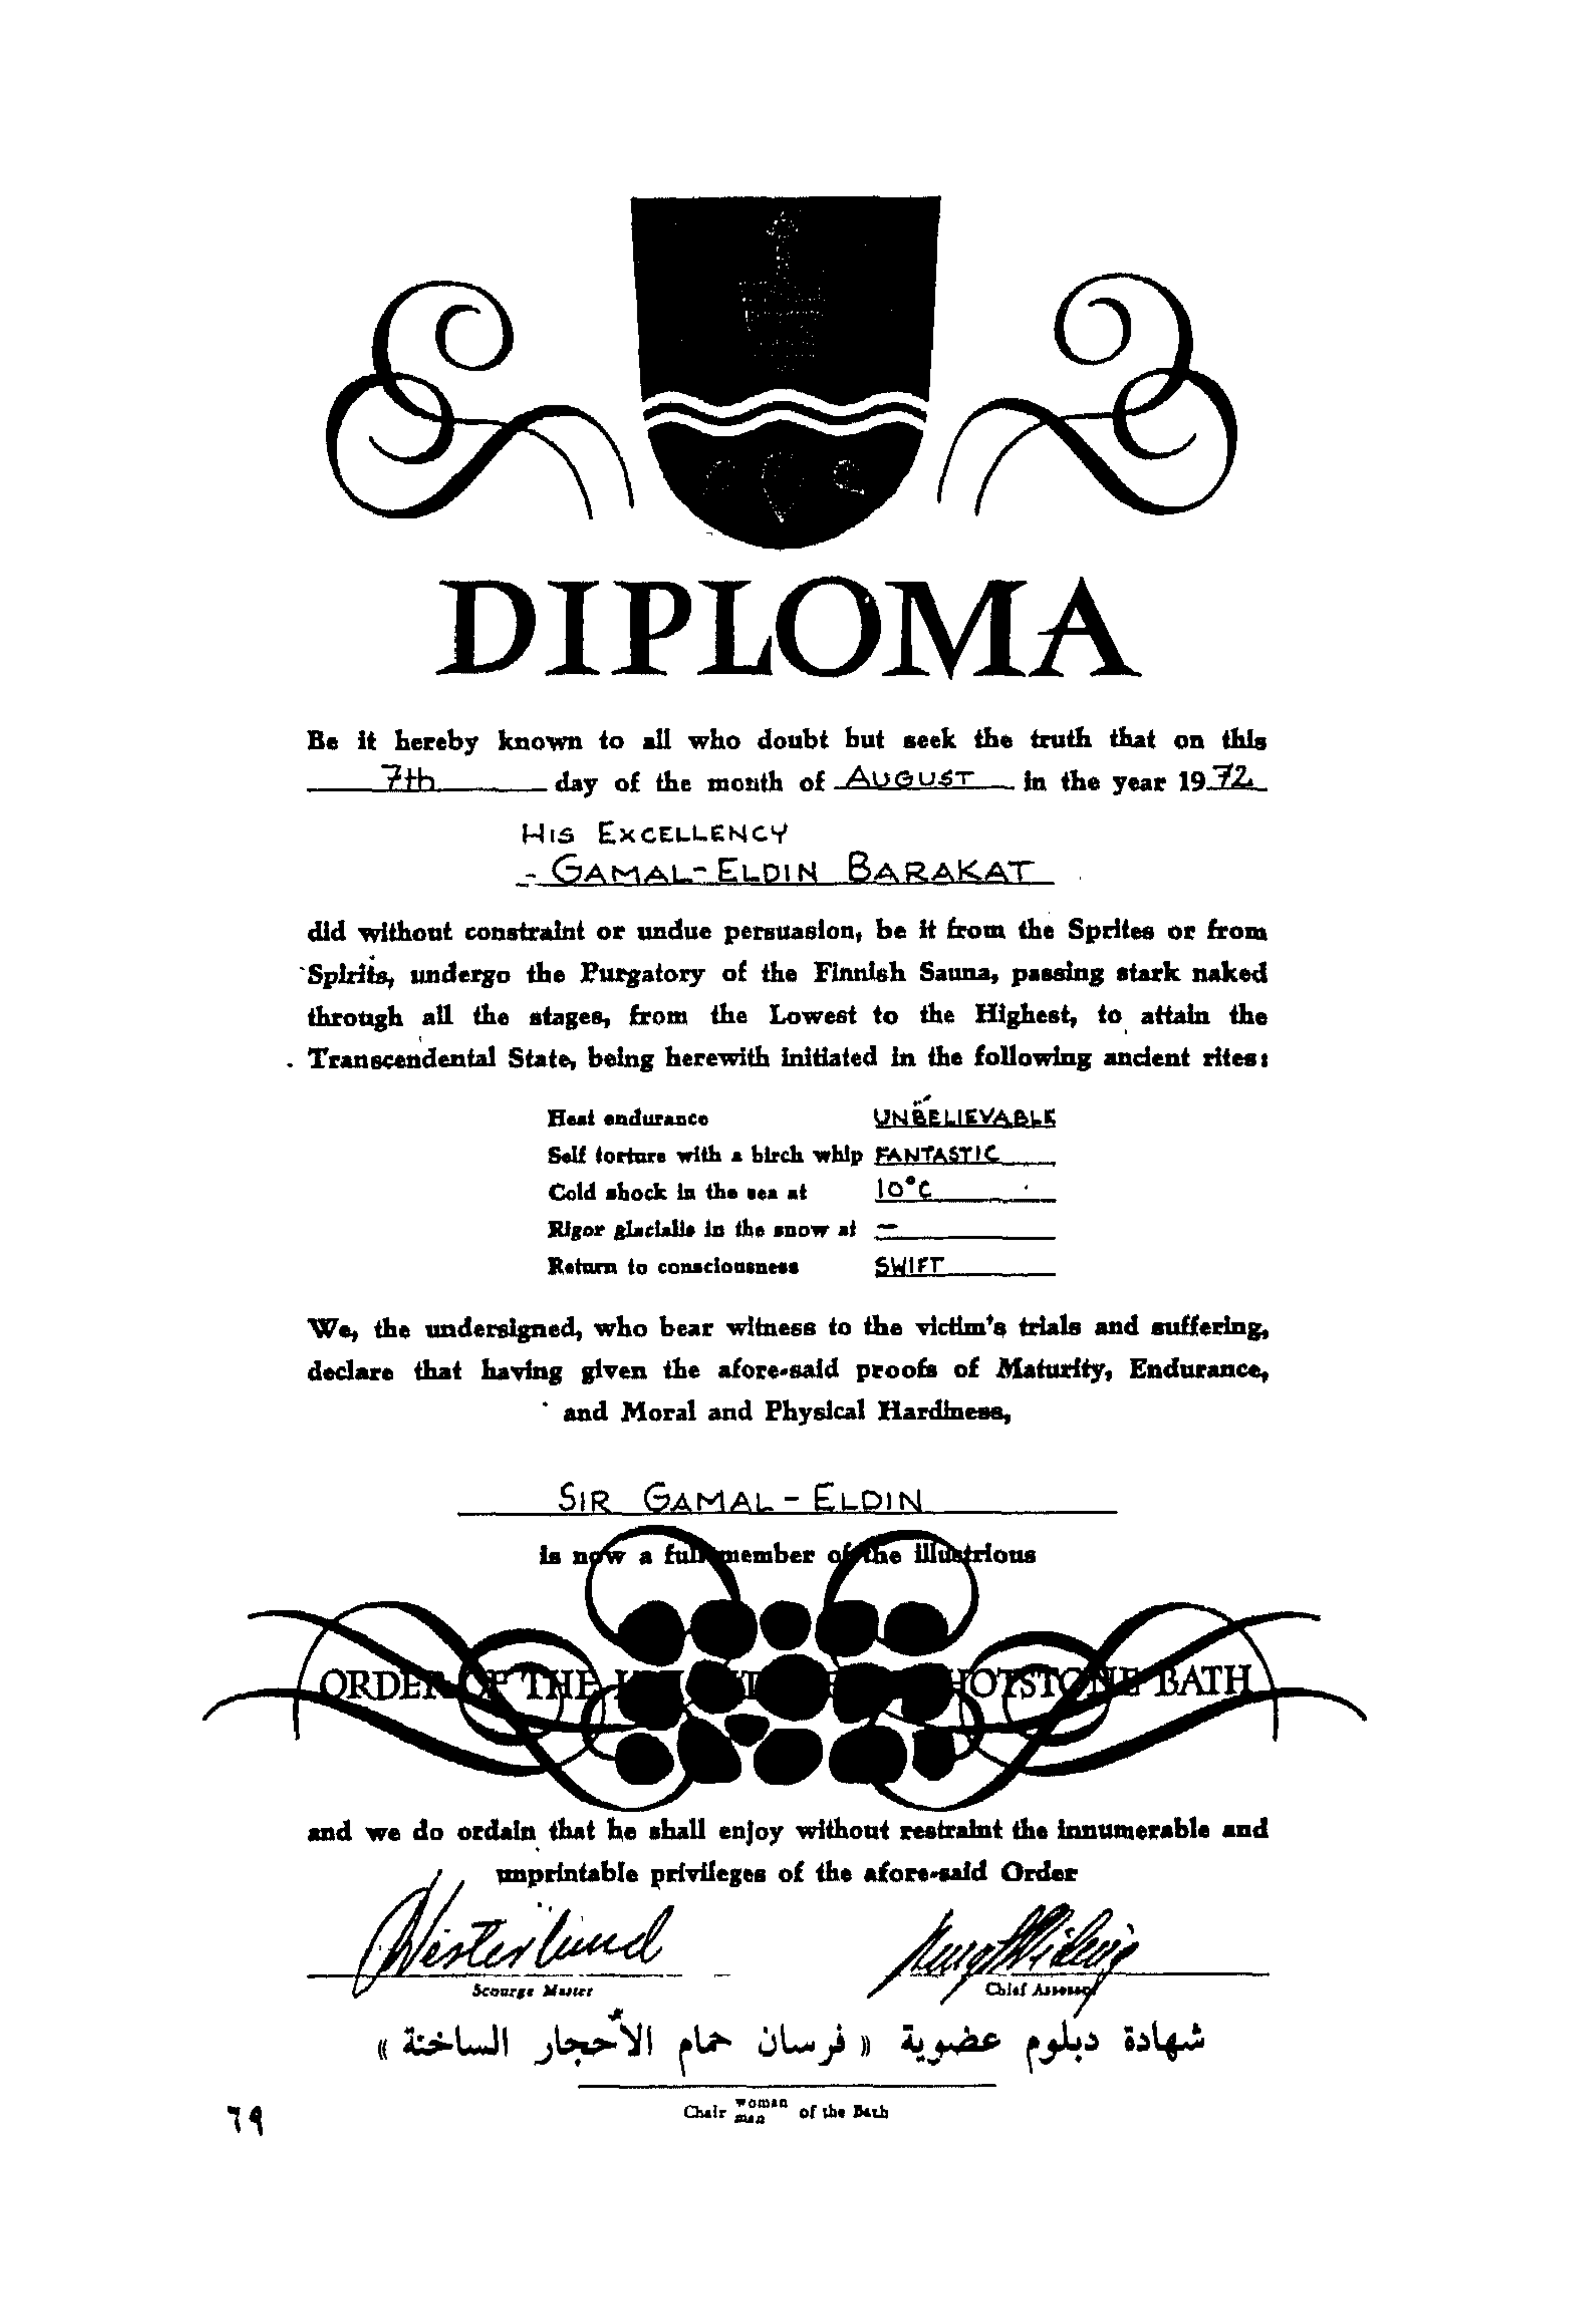 DIPLOMA
Be it hereby known to all who doubt but seek the truth that on this
7th day of the month of AUGUST in the year 1972
HIS EXCELLENCY
- GAMAL-ELDIN BARAKAT
did without constraint or undue persuasion, be it from the Sprites or from
Spirits, undergo the Purgatory of the Finnish Sauna, passing stark naked
through all the stages, from the Lowest to the Highest, to attain the
Transcendental State, being herewith initiated in the following ancient rites:
Heat endurance UNBELIEVABLE
Self torture with a birch whip FANTASTIC
Cold shock in the sea at 10°C
Rigor glacialis in the snow at —
Return to consciousness SWIFT
We, the undersigned, who bear witness to the victim's trials and suffering,
declare that having given the afore-said proofs of Maturity, Endurance,
and Moral and Physical Hardiness,
SIR GAMAL-ELDIN
is now a full member of the illustrious
ORDER OF THE HOTSTONE BATH
and we do ordain that he shall enjoy without restraint the innumerable and
unprintable privileges of the afore-said Order
Westerlund
Scourge Master Chief Assessor
شهادة دبلوم عضوية « فرسان حمام الأحجار الساخنة »
Chair woman man of the Bath
٦٩